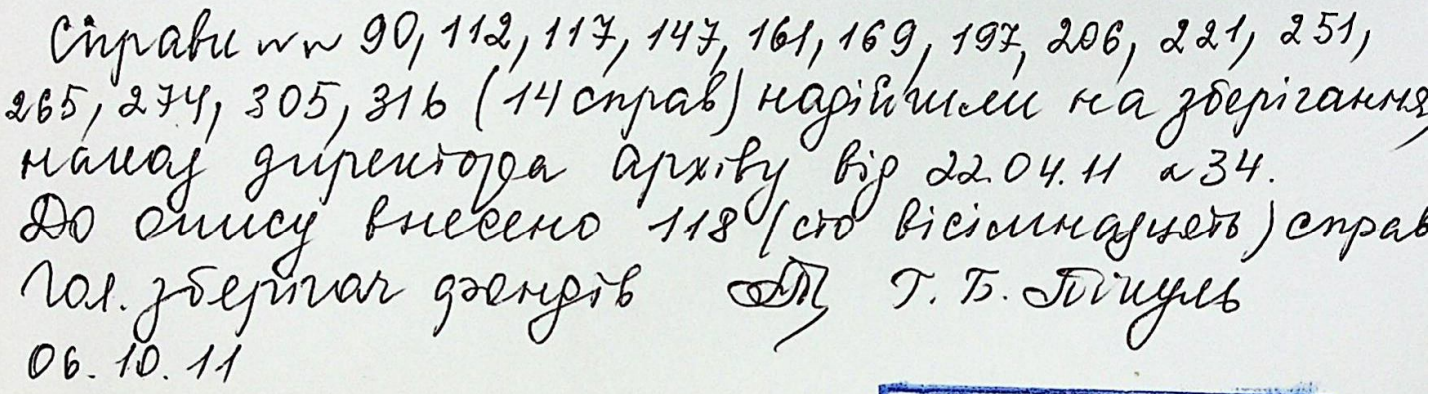 Справи №№ 90, 112, 117, 147, 161, 169, 197, 206, 221, 251,
265, 274, 305, 316 (14 справ) надійшли на зберігання,
наказ директора архіву від 22.04.11 № 34.
До опису внесено 118 (сто вісімнадцять) справ
Гол. зберігач фондів Г. Б. Пікуль
06.10.11